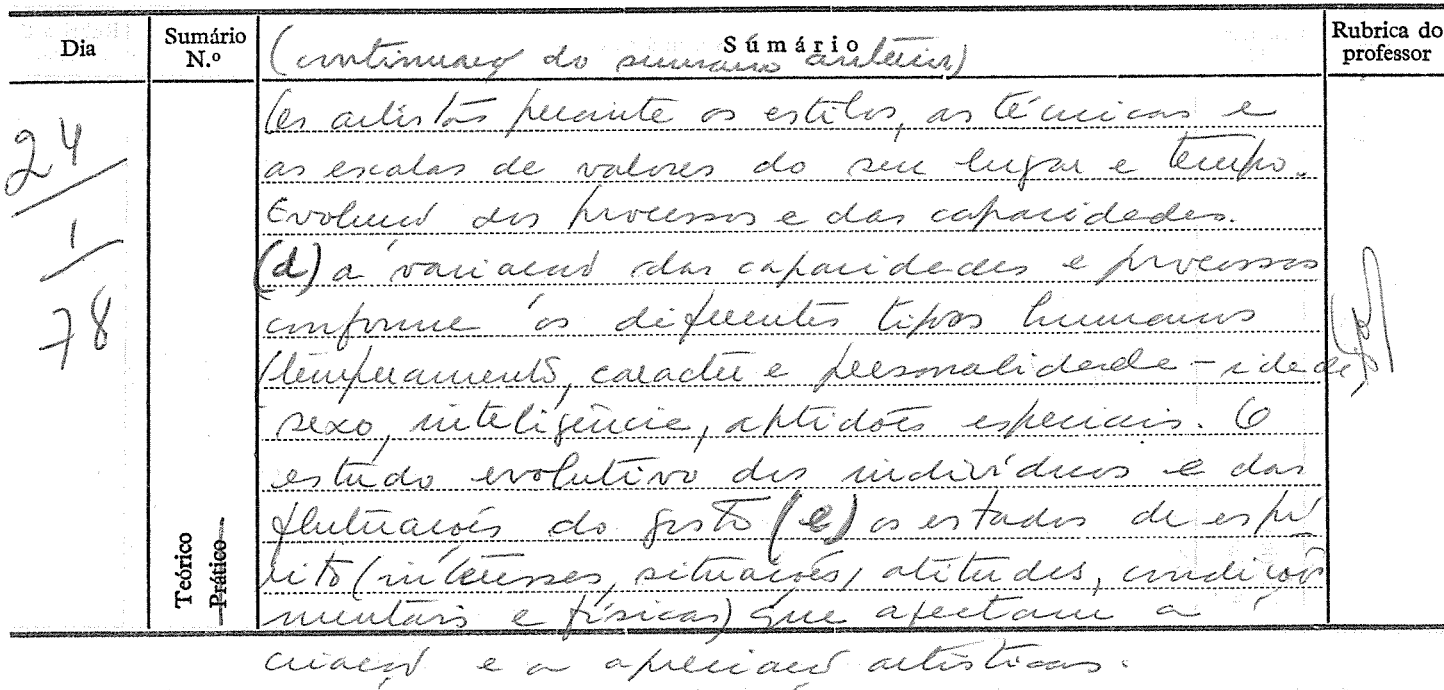 Dia
Sumário N.º
Sumário
Rubrica do professor
(continuação do sumário anterior)
24
1
78
artistas perante os estilos, as técnicas e
as escalas de valores do seu lugar e tempo.
Evolução dos processos e das capacidades.
(d) a variação das capacidades e processos
conforme os diferentes tipos humanos
(temperamento, caracter e personalidade - idade,
sexo, inteligência, aptidões especiais. O
estudo evolutivo dos indivíduos e das
flutuações do gosto (e) os estados de espí
rito (interesses, situações, atitudes, condições
mentais e físicas) que afectam a
criação e a apreciação artísticas.
Teórico
Prático